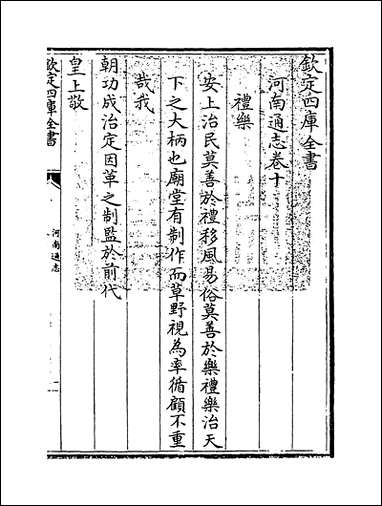 欽定四庫全書
河南通志卷十
禮樂
安上治民莫善於禮移風易俗莫善於樂禮樂治天
下之大柄也廟堂有制作而草野視為率循顧不重
哉我
朝功成治定因革之制監於前代
皇上敬
欽定四庫全書
河南通志